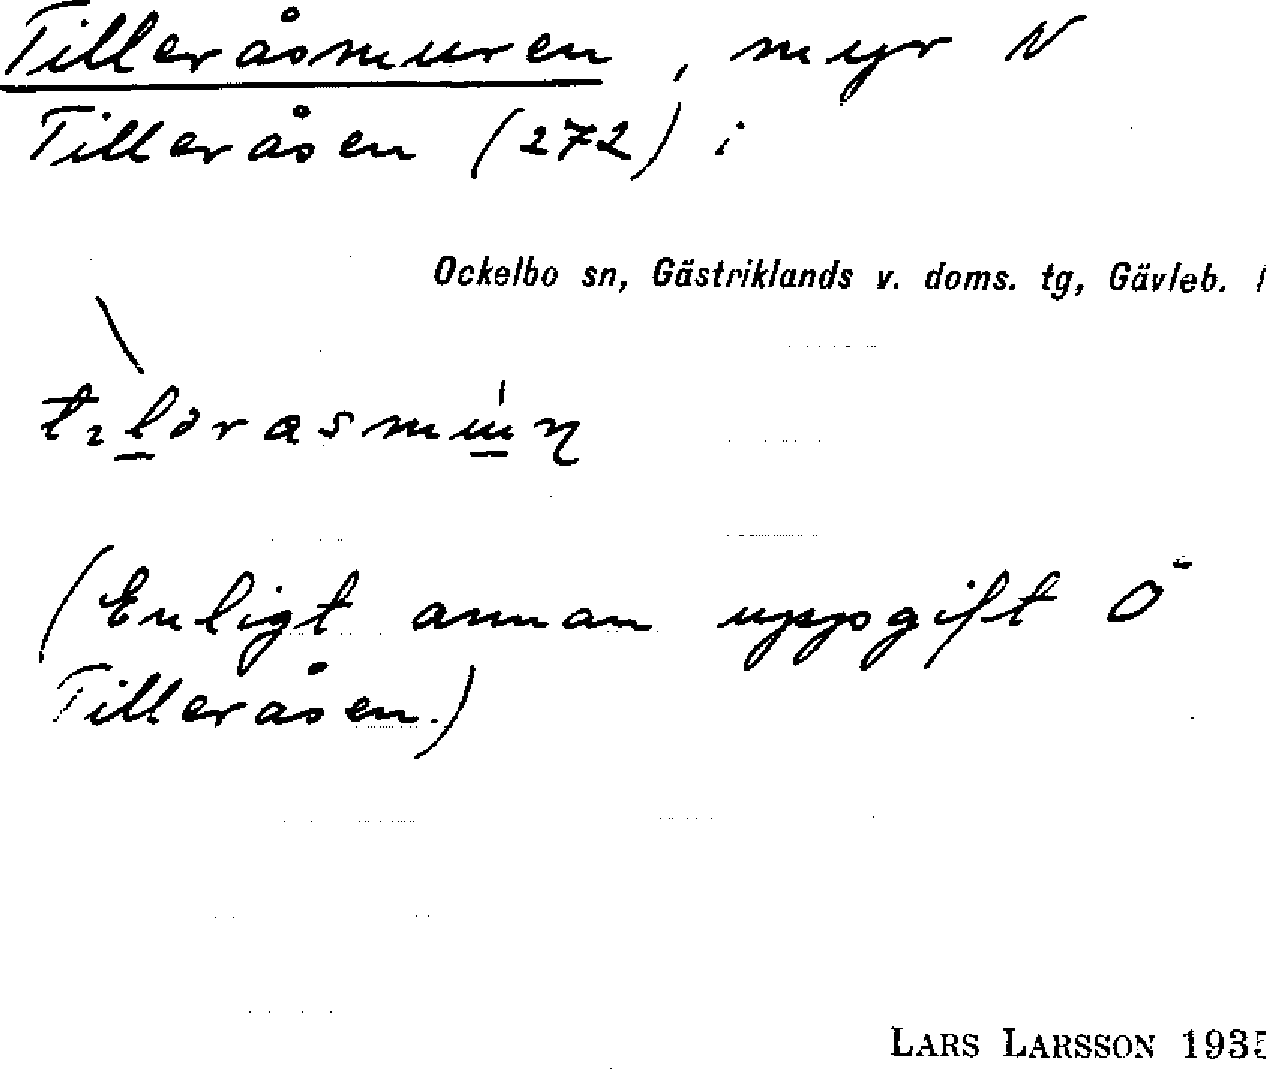 Tilleråsmuren, myr N
Tilleråsen (272) i
Ockelbo sn, Gästriklands v. doms. tg, Gävleb. l
(Enligt annan uppgift Ö
Tilleråsen.)
LARS LARSSON 1935